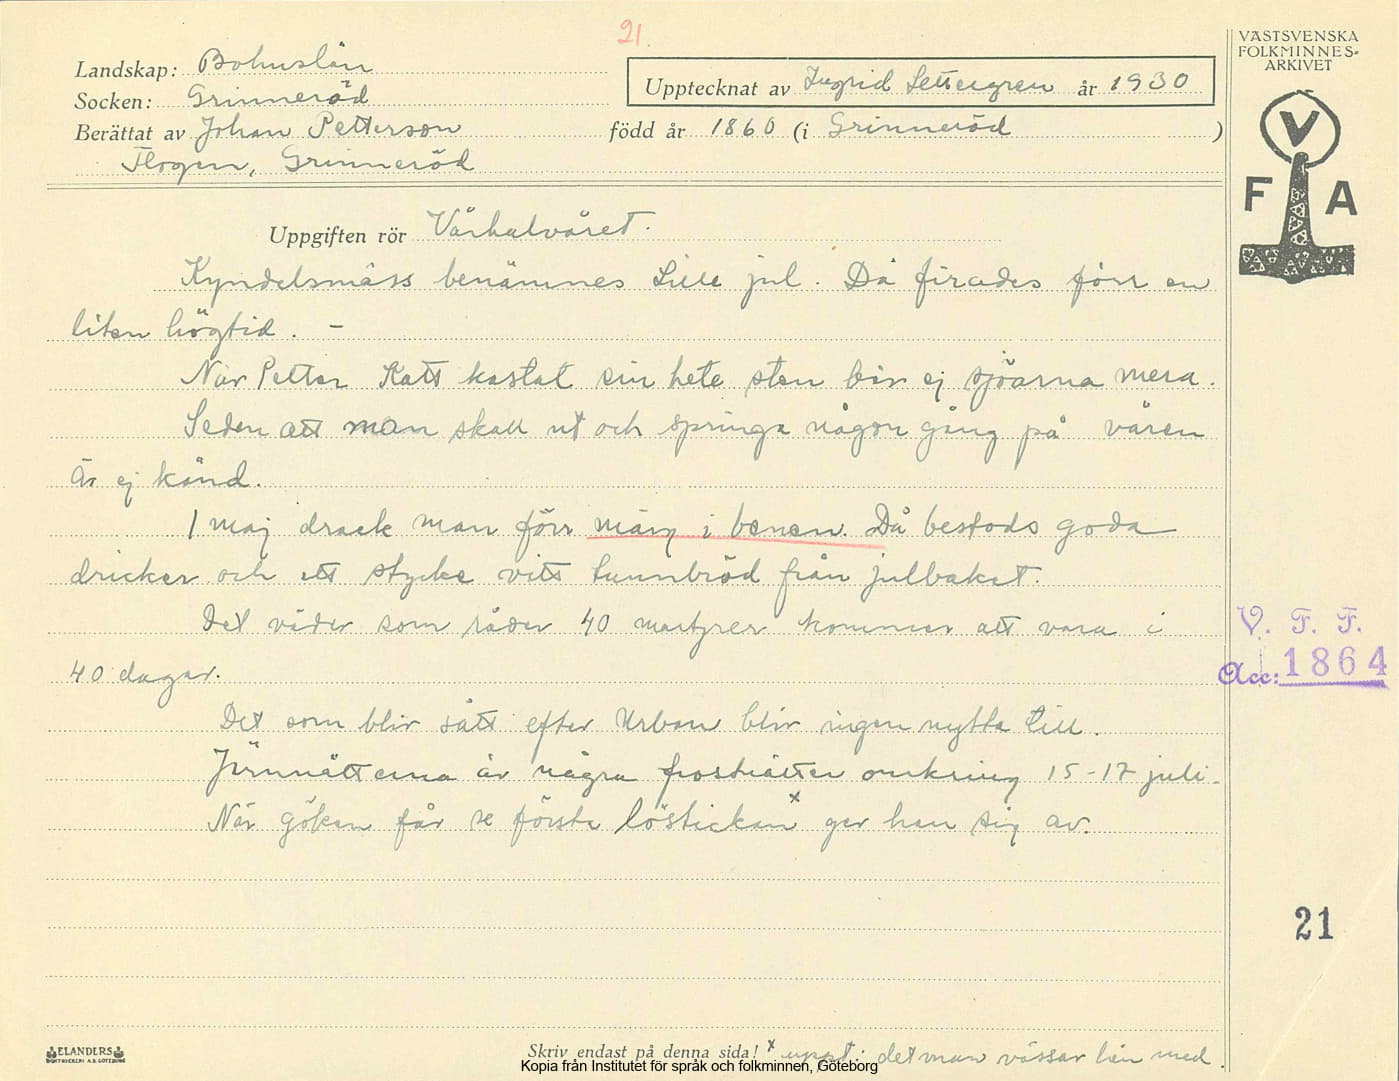 21.
VÄSTSVENSKA
FOLKMINNES-
ARKIVET
Landskap: Bohuslän
Upptecknat av Ingrid Settergren år 1930
Socken: Grinneröd
Berättat av Johan Petterson född år 1860 (i Grinneröd )
Flogen, Grinneröd
V
F A
Uppgiften rör Vårhalvåret.
Kyndelsmäss benämnes Lille jul. Då firades förr en
liten högtid. –
När Petter Katt kastat sin hete sten bär ej sjöarna mera.
Seden att man skall ut och springa någon gång på våren
är ej känd.
1 maj drack man förr märg i benen. Då bestods goda
dricker och ett stycke vitt tunnbröd från julbaket.
Det väder som råder 40 martyrer kommer att vara i
V. F. F.
40 dagar.
Acc: 1864
Det som blir sått efter Urban blir ingen nytta till.
Järnnätterna är några frostnätter omkring 15-17 juli.
När göken får se första löstickan x ger han sig av.
21
ELANDERS
BOKTRYCKERI A.B. GÖTEBORG
Skriv endast på denna sida! x det man vässar lien med.
Kopia från Institutet för språk och folkminnen, Göteborg